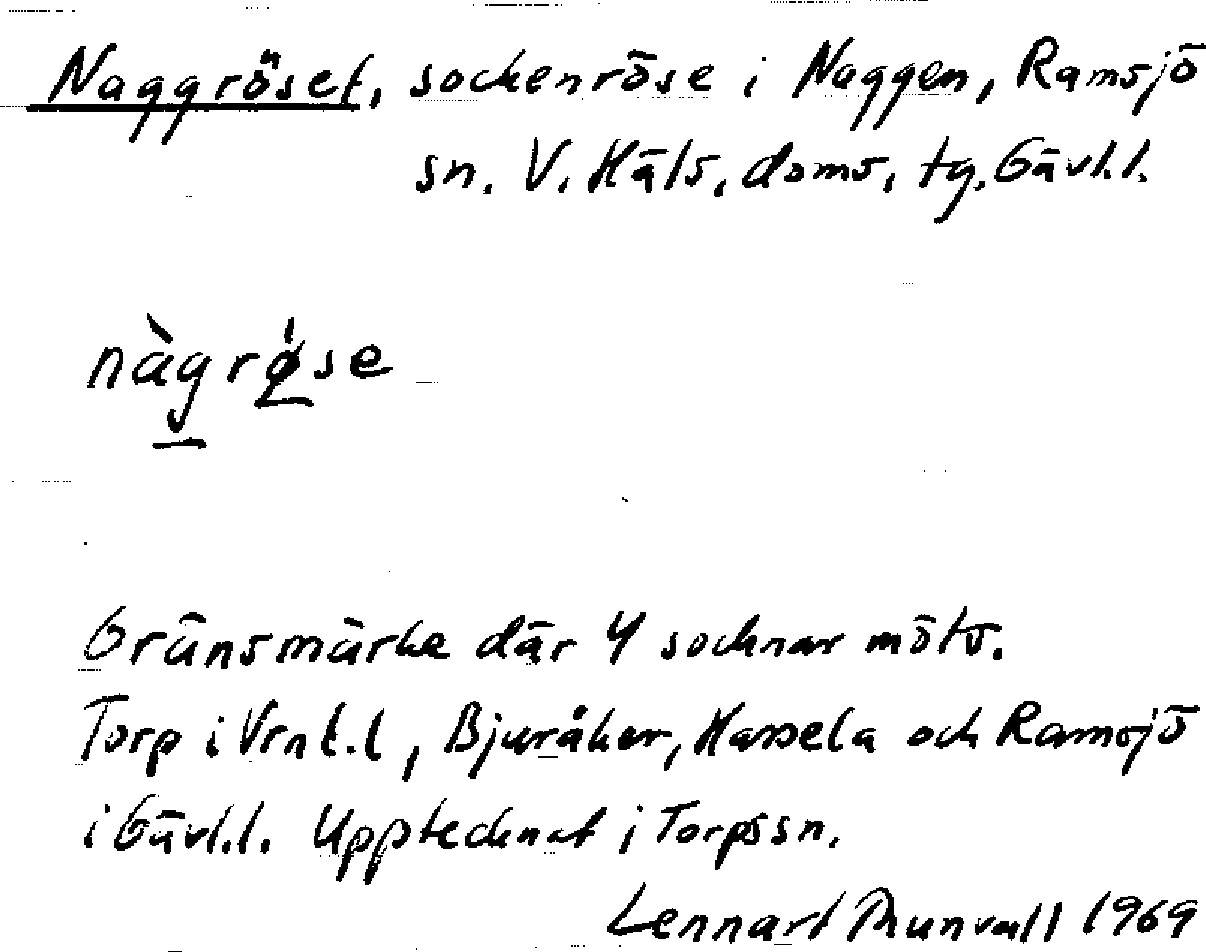 Naggröset, sockenröse i Naggen, Ramsjö
sn. V. Häls. doms. tg. Gävl.l.
nàgrǿse
Gränsmärke där 4 socknar möts.
Torp i Vrnl.l, Bjuråker, Hassela och Ramsjö
i Gävl.l. Upptecknat i Torps sn.
Lennart Thunvall 1969